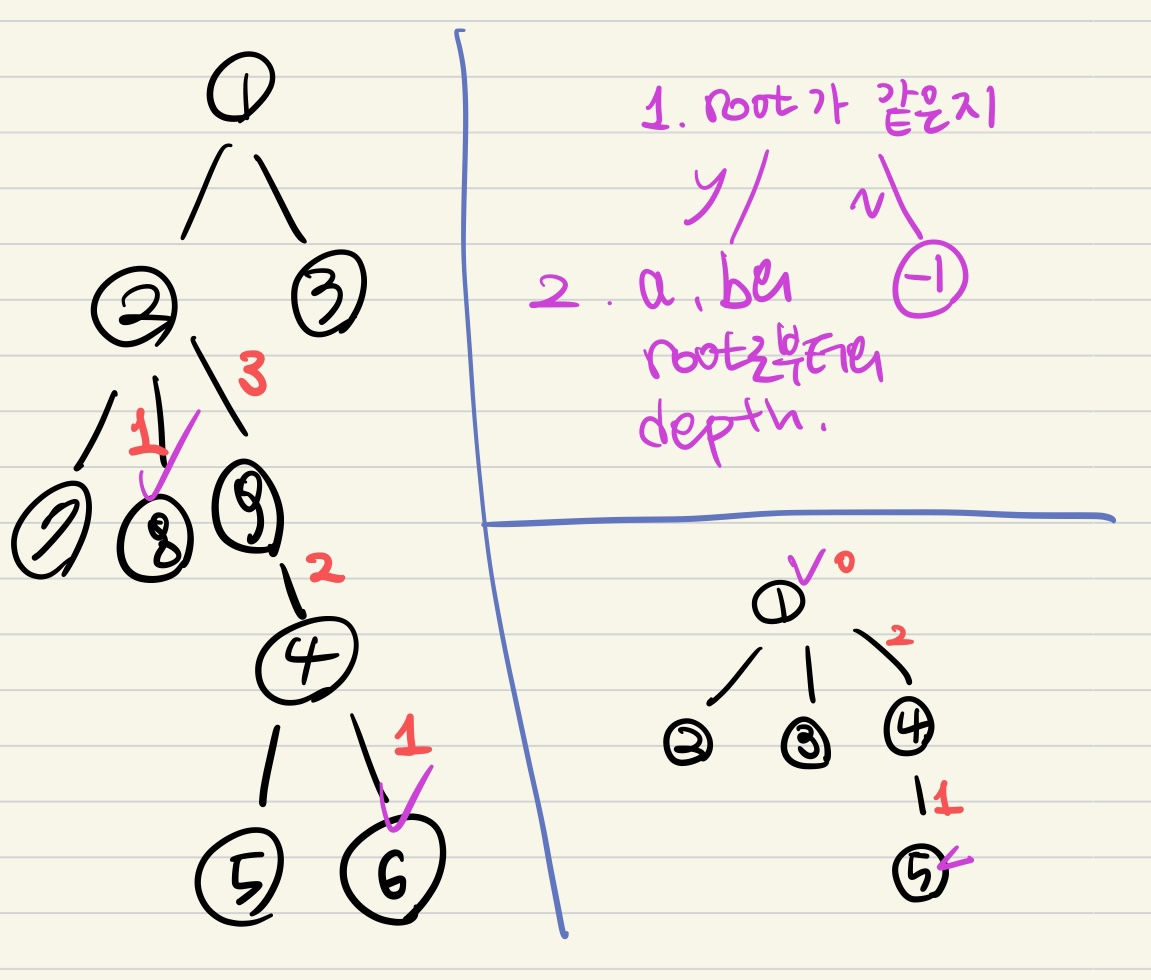 1
2 3
3
1
7 8 9
2
4
1
5 6
1. root가 같은지
y N
2. a, b의 -1
root로부터의
depth.
0
1
2
2 3 4
1
5